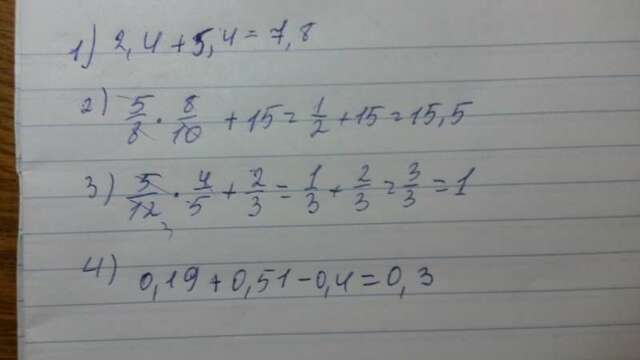 1) 2,4 + 5,4 = 7,8
2) 5/8 · 8/10 + 15 = 1/2 + 15 = 15,5
3) 5/12 · 4/5 + 2/3 = 1/3 + 2/3 = 3/3 = 1
3
4) 0,19 + 0,51 - 0,4 = 0,3